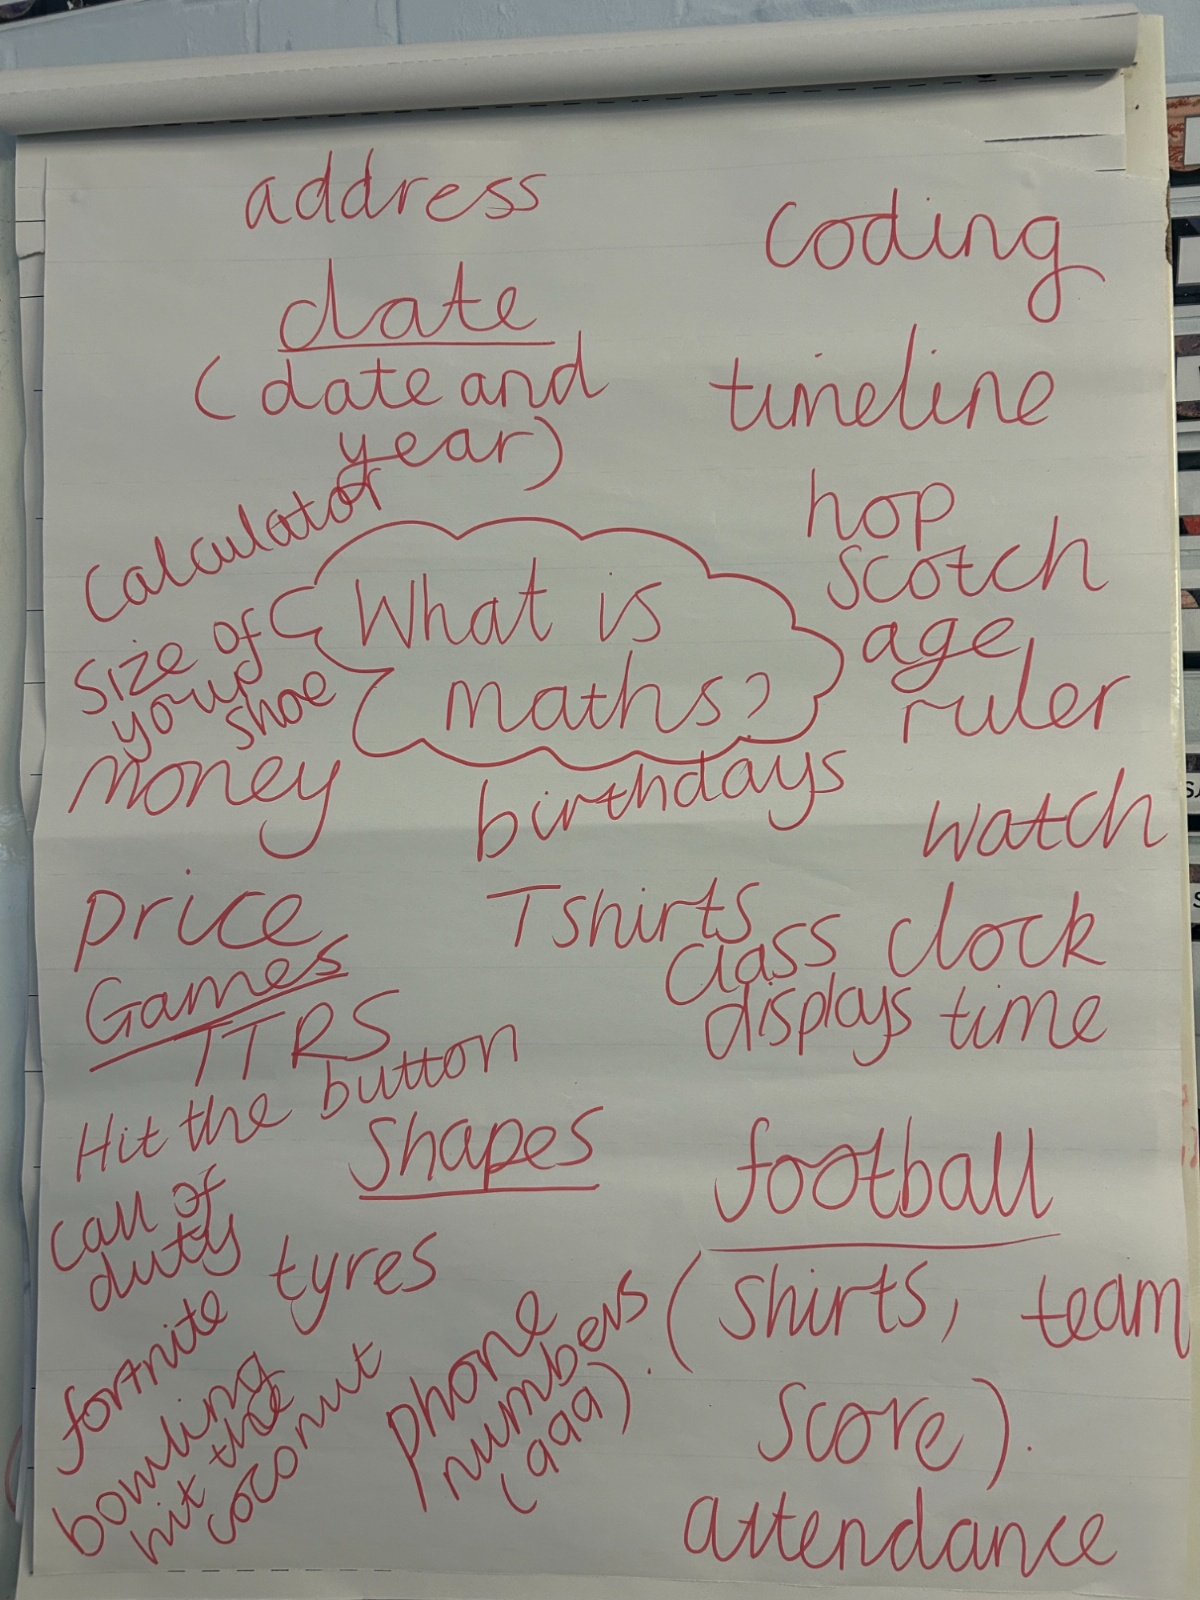 address
coding
date
(date and
year)
timeline
calculator
hop
scotch
What is
maths?
size of
your
shoe
age
ruler
money
birthdays
watch
price
Tshirts
class clock
displays time
Games
TTRS
Hit the button
Shapes
football
(shirts, team
score).
call of
duty
tyres
fortnite
phone
numbers
(999).
bowling
hit the
coconut
attendance